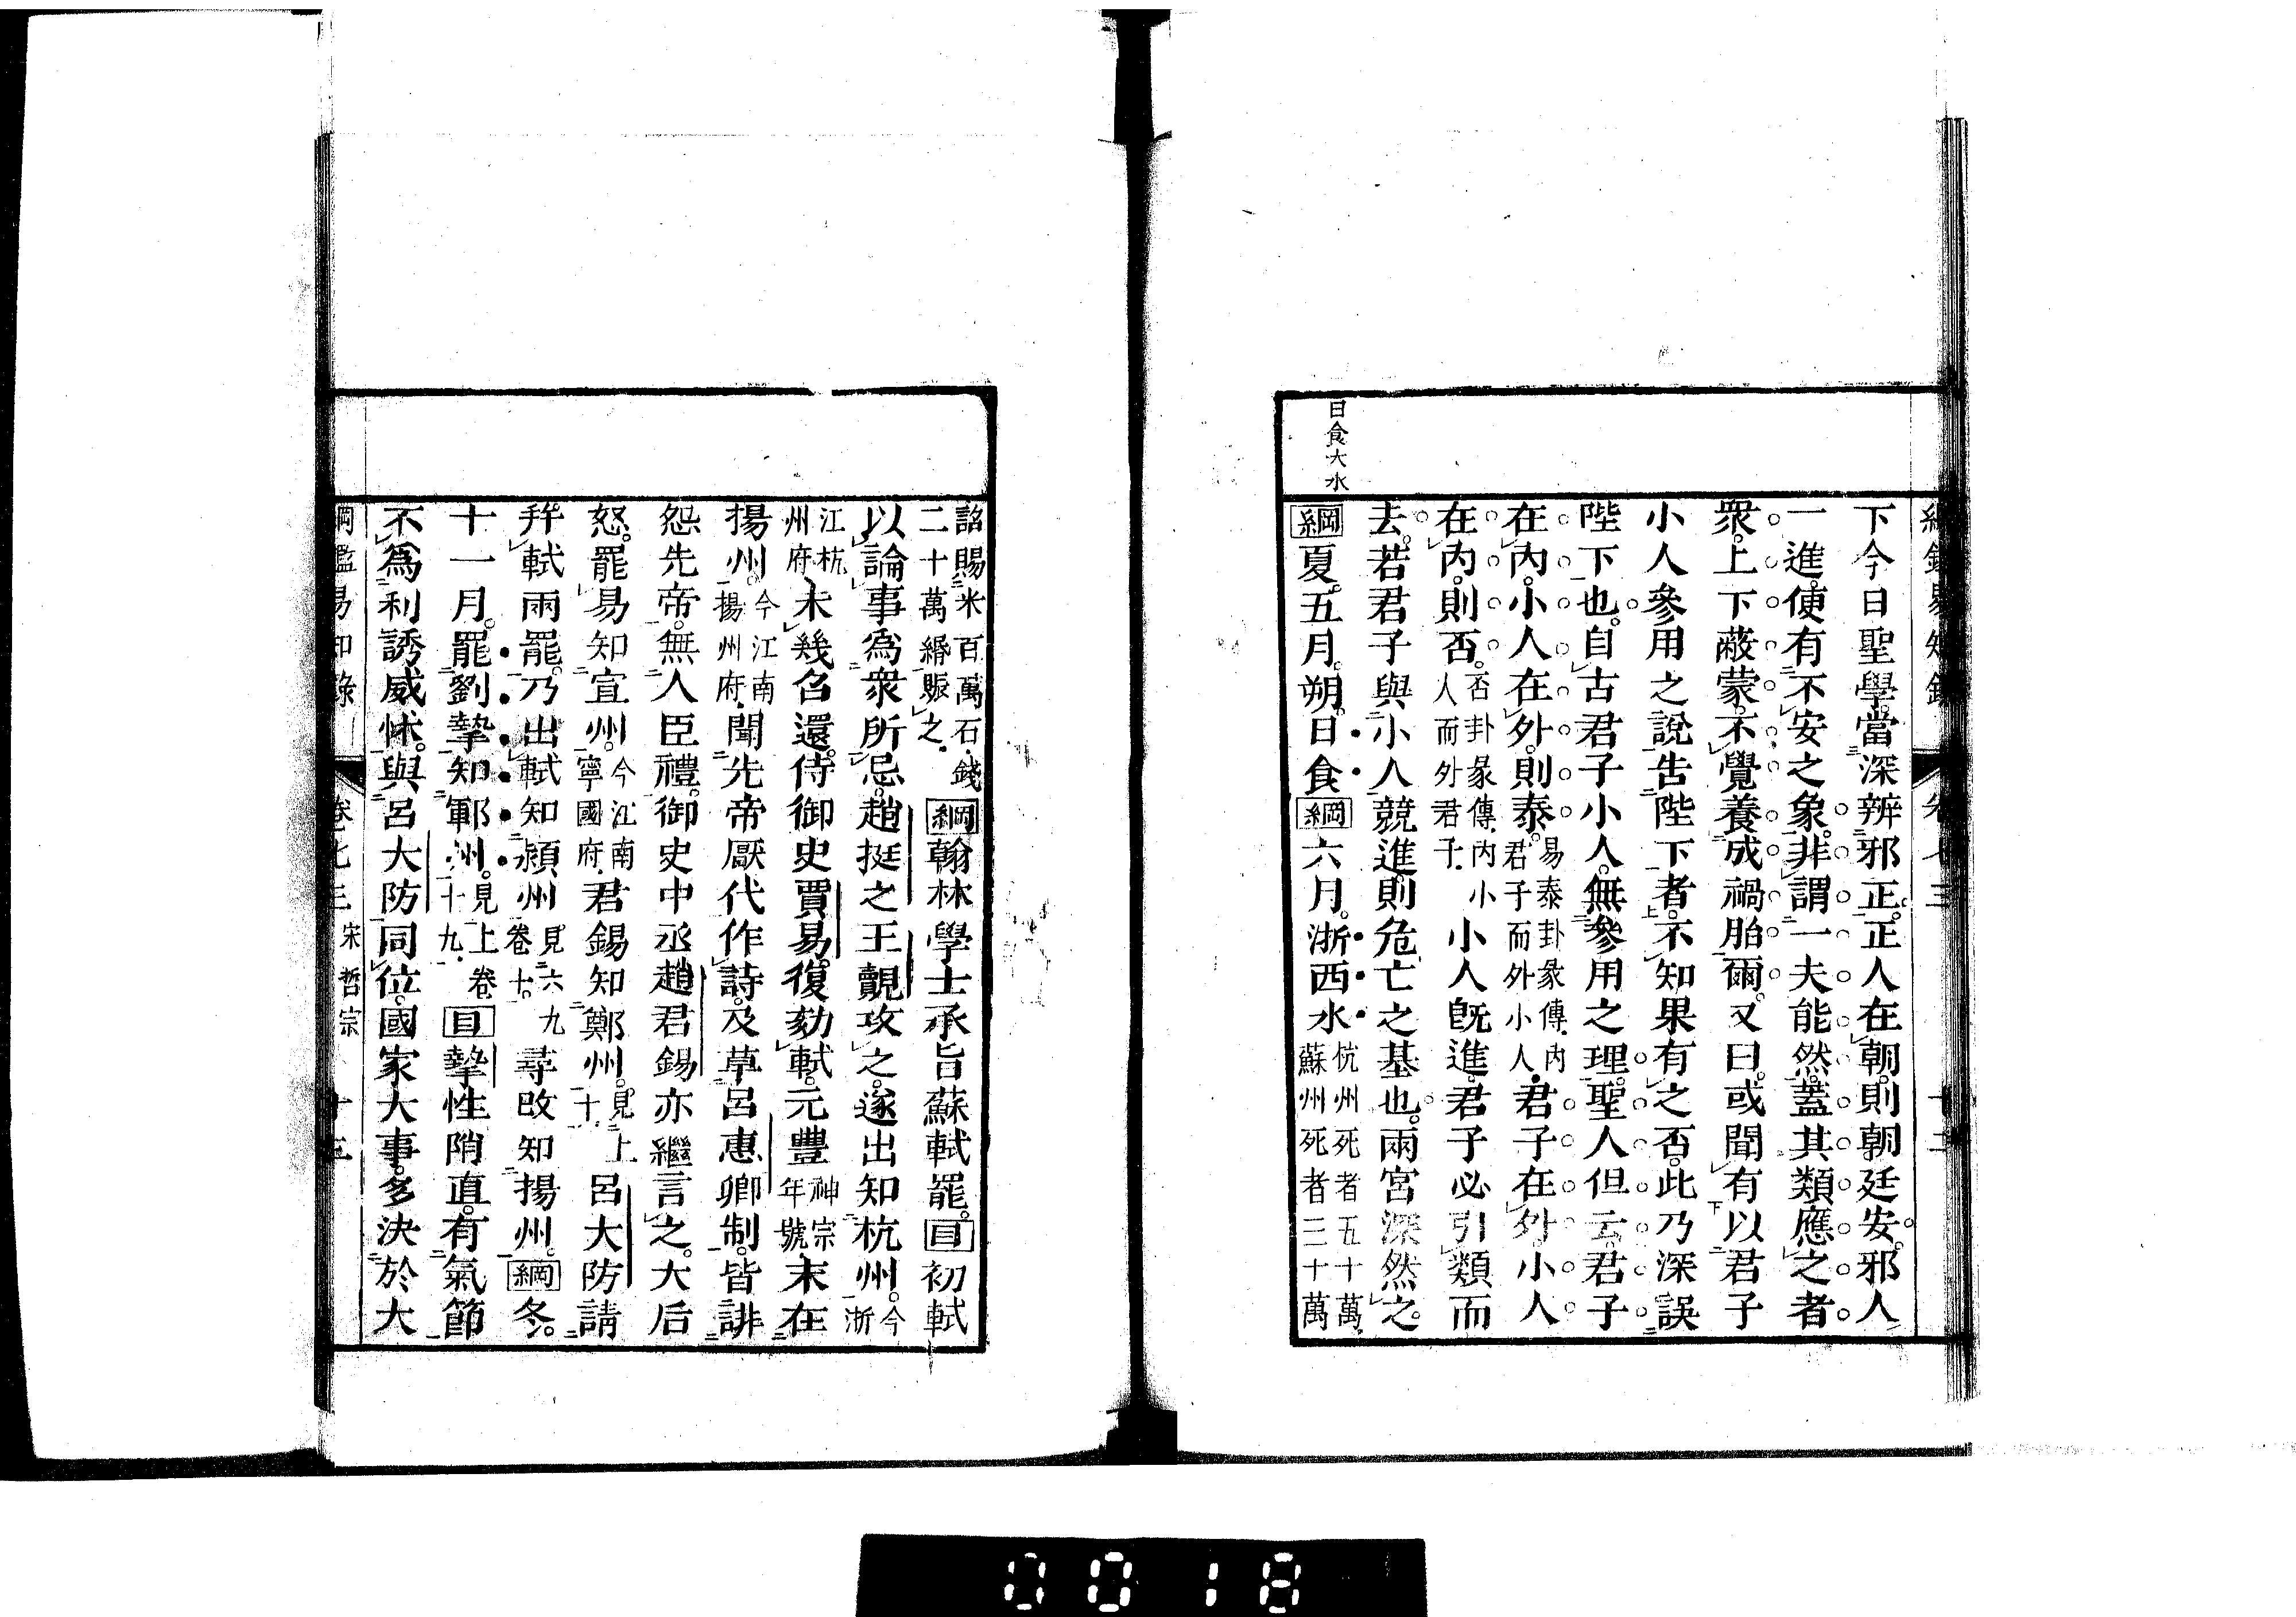 下今日聖學。當深辨邪正。正人在朝。則朝廷安。邪人
一進。使有不安之象。非謂一夫能然。蓋其類應之者
衆。上下蔽蒙。不覺養成禍胎爾。又曰。或聞有以君子
小人參用之說。告陛下者。不知果有之否。此乃深誤
陛下也。自古君子小人。無參用之理。聖人但云。君子
在內。小人在外。則泰。易泰卦彖傳。內君子而外小人。君子在外。小人
在內。則否。否卦彖傳。內小人而外君子。小人旣進。君子必引類而
去。若君子與小人競進。則危亡之基也。兩宮深然之。
日食大水
綱夏。五月。朔。日食綱六月。浙西水杭州死者五十萬。蘇州死者三十萬
詔賜米百萬石。錢二十萬緡賑之。綱翰林學士承旨蘇軾罷。目初軾
以論事爲衆所忌。趙挺之王覿攻之。遂出知杭州。今浙
江杭州府未幾召還。侍御史賈易。復劾軾。元豐神宗年號末在
揚州。今江南揚州府。聞先帝厭代作詩。及草呂惠卿制。皆誹
怨先帝。無人臣禮。御史中丞趙君錫亦繼言之。大后
怒。罷易知宣州。今江南寧國府。君錫知鄭州。見上十。呂大防請
幷軾兩罷。乃出軾知潁州見六九卷十。尋改知揚州。綱冬。
十一月。罷劉摯知鄆州。見上卷二十九。目摯性陗直。有氣節
不爲利誘威怵。與呂大防同位。國家大事。多決於大
綱鑑易知錄 卷七三 宋哲宗 十三